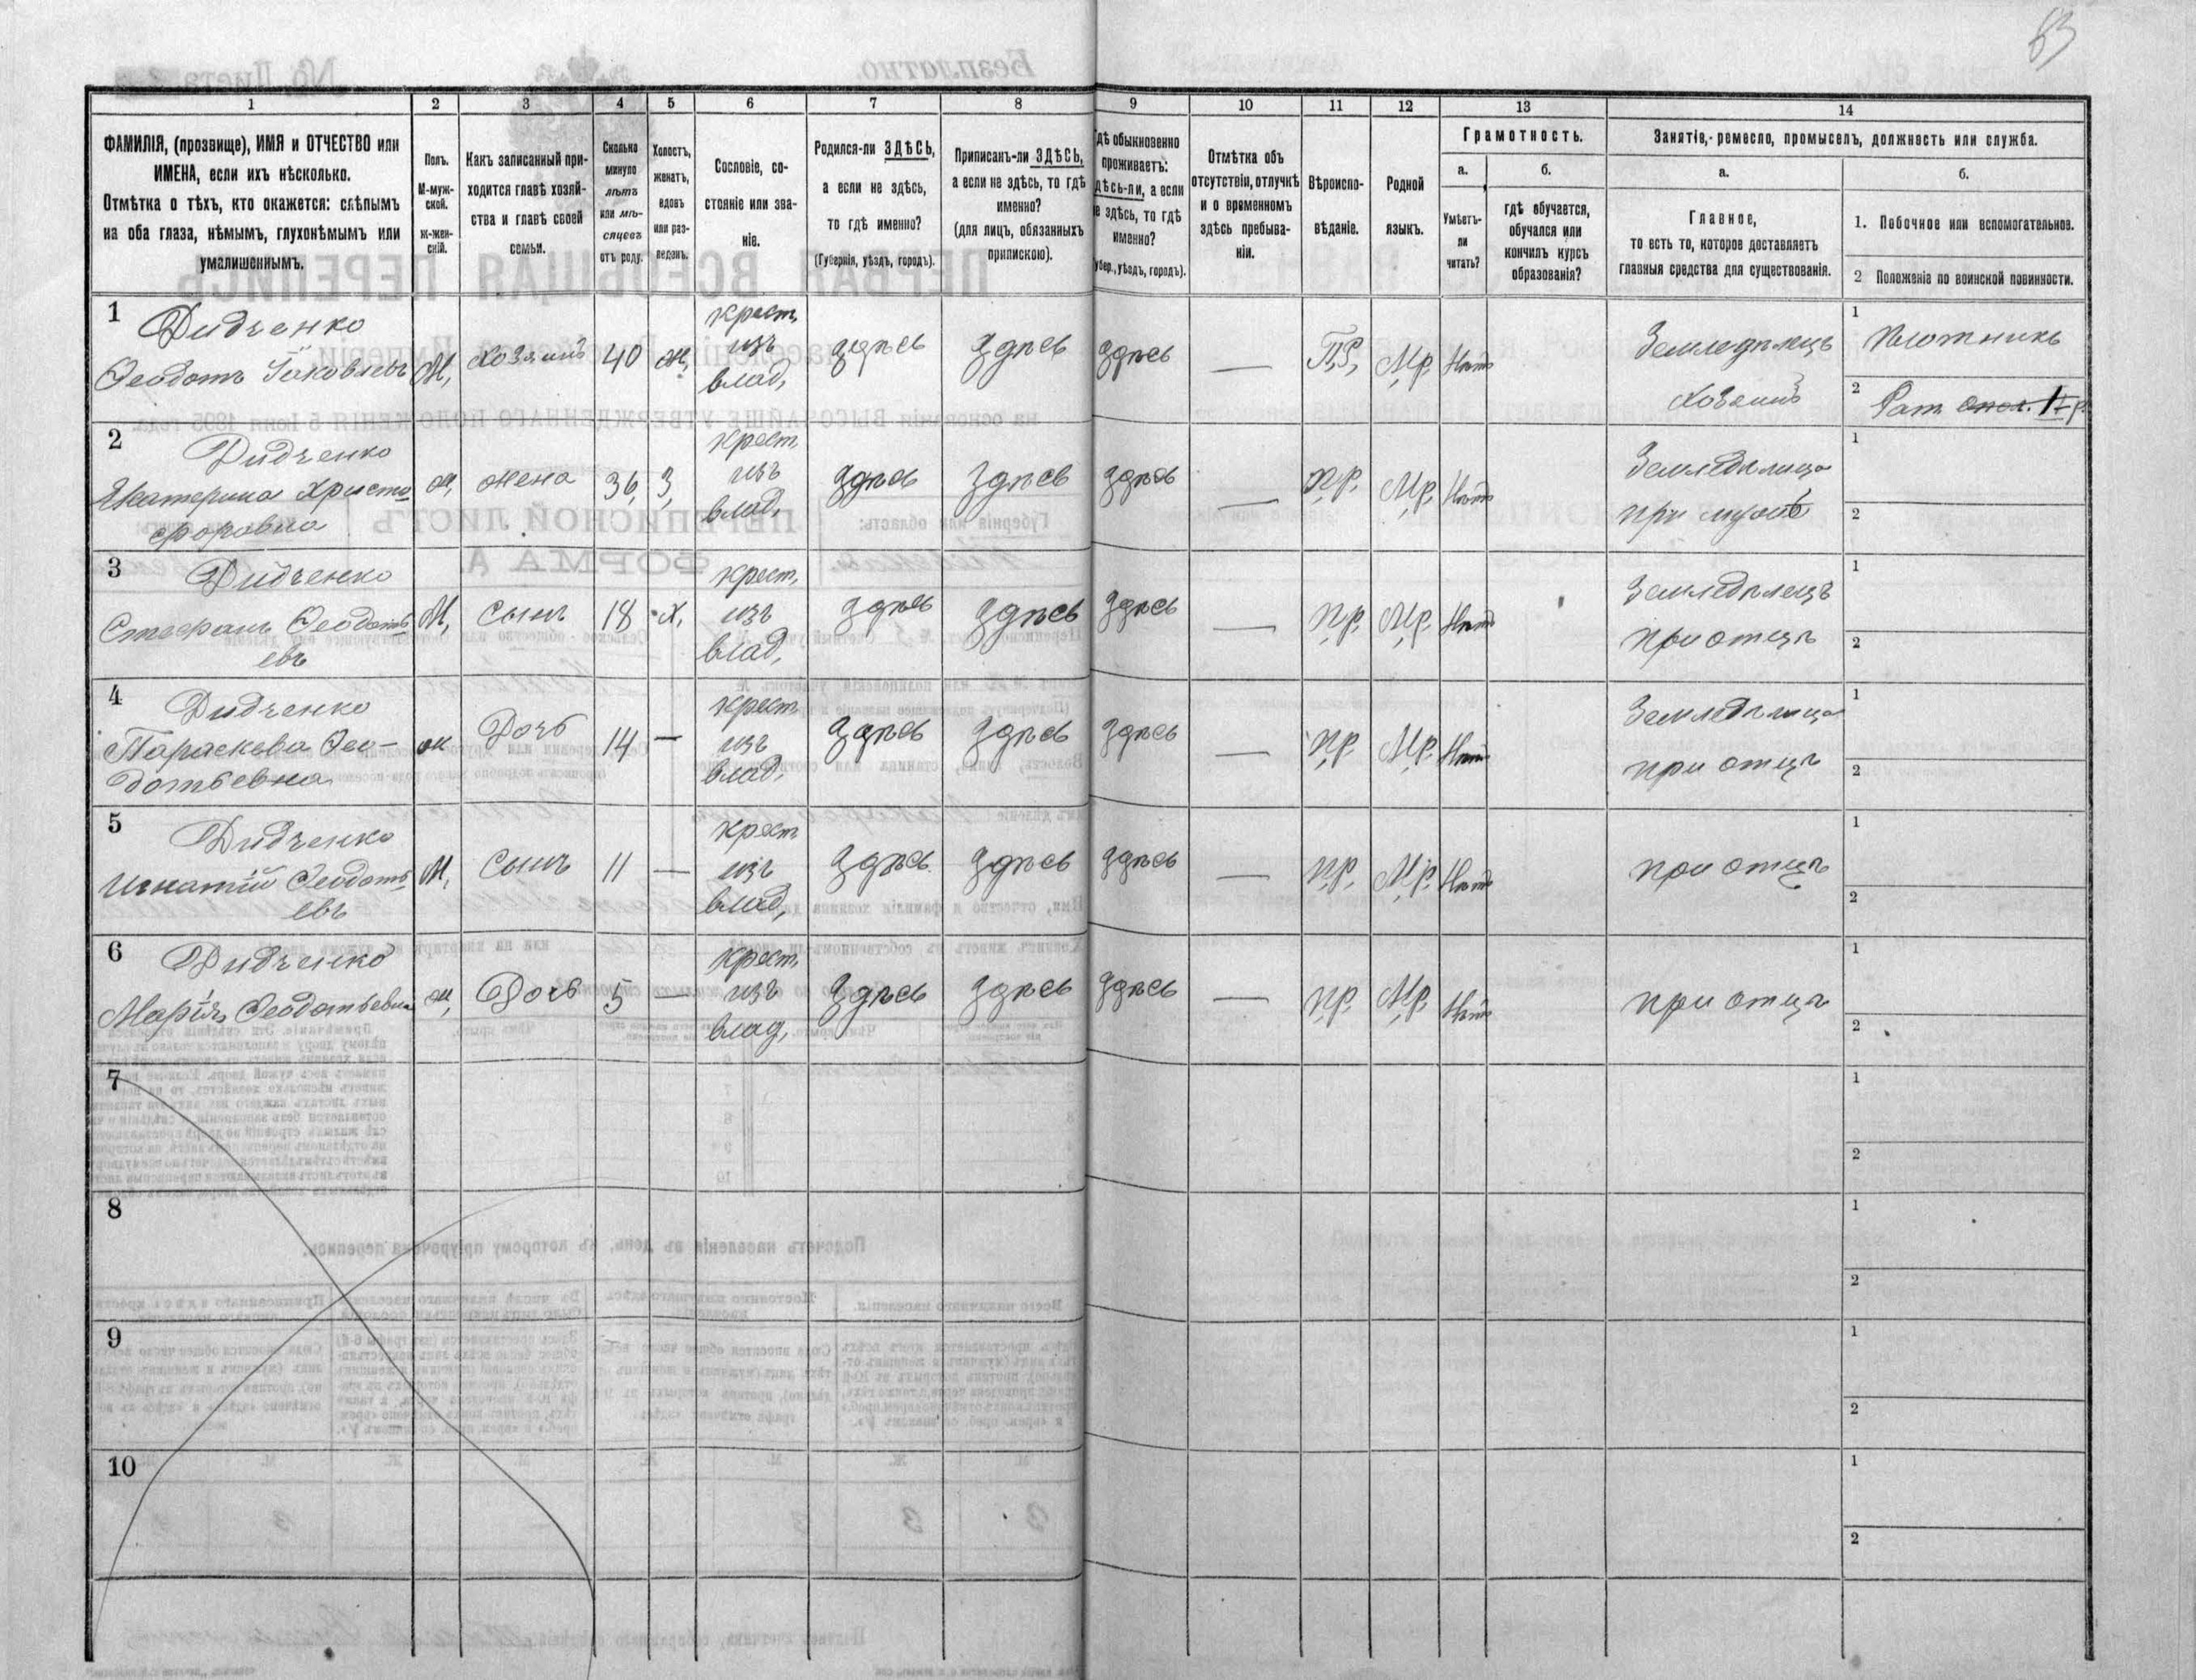 63
1 2 3 4 5 6 7 8 9 10 11 12 13 14
ФАМИЛІЯ, (прозвище), ИМЯ и ОТЧЕСТВО или
ИМЕНА, если ихъ нѣсколько.
Отмѣтка о тѣхъ, кто окажется: слѣпымъ
на оба глаза, нѣмымъ, глухонѣмымъ или
умалишеннымъ.
Полъ.
М-муж-
ской.
Ж-жен-
скій.
Какъ записанный при-
ходится главѣ хозяй-
ства и главѣ своей
семьи.
Сколько
минуло
лѣтъ
или мѣ-
сяцевъ
отъ роду.
Холостъ,
женатъ,
вдовъ
или раз-
веденъ.
Сословіе, со-
стояніе или зва-
ніе.
Родился-ли ЗДѢСЬ,
а если не здѣсь,
то гдѣ именно?
(Губернія, уѣздъ, городъ).
Приписанъ-ли ЗДѢСЬ,
а если не здѣсь, то гдѣ
именно?
(для лицъ, обязанныхъ
припискою).
гдѣ обыкновенно
проживаетъ:
здѣсь-ли, а если
не здѣсь, то гдѣ
именно?
(губер., уѣздъ, городъ).
Отмѣтка объ
отсутствіи, отлучкѣ
и о временномъ
здѣсь пребыва-
ніи.
Вѣроиспо-
вѣданіе.
Родной
языкъ.
Грамотность.
а.
Умѣетъ-
ли
читать?
б.
гдѣ обучается,
обучался или
кончилъ курсъ
образованія?
Занятіе,- ремесло, промыселъ, должность или служба.
а.
Главное,
то есть то, которое доставляетъ
главныя средства для существованія.
б.
1. Побочное или вспомогательное.
2 Положеніе по воинской повинности.
1
Дидченко
Ѳеодотъ Іаковлевъ
М,
хозяинъ
40
ж,
крест,
изъ
влад,
здѣсь
здѣсь
здѣсь
—
П,Р,
М,р,
Нѣтъ
Земледѣлецъ
хозяинъ
1
плотникъ
2
Рат. опол. II р.
2
Дидченко
Екатерина Христо
форовна
ж,
жена
36,
З,
крест,
изъ
влад,
здѣсь
здѣсь
здѣсь
—
П,р,
М,р,
Нѣтъ
Земледѣлица
при мужѣ
1
2
3
Дидченко
Стефанъ Ѳеодоть
евъ
М,
сынъ
18
х,
крест,
изъ
влад,
здѣсь
здѣсь
здѣсь
—
П,р,
М,р,
Нѣтъ
Земледѣлецъ
при отцѣ
1
2
4
Дидченко
Параскева Ѳео-
дотьевна
ж
Дочь
14
—
крест,
изъ
влад,
здѣсь
здѣсь
здѣсь
—
П,р,
М,р,
Нѣтъ
Земледѣлица
при отцѣ
1
2
5
Дидченко
Игнатій Ѳеодоть
евъ
М,
сынъ
11
—
крест
изъ
влад,
здѣсь
здѣсь
здѣсь
—
П,р,
М,р,
Нѣтъ
при отцѣ
1
2
6
Дидченко
Марія Ѳеодотьевна
ж,
Дочь
5
—
крест,
изъ
влад,
здѣсь
здѣсь
здѣсь
—
П,р,
М,р,
Нѣтъ
при отцѣ
1
2
7
1
2
8
1
2
9
1
2
10
1
2